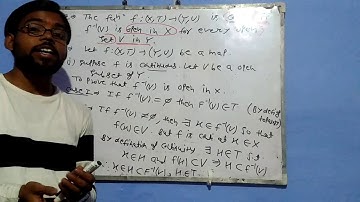 The funⁿ f: (X,T) → (Y,U) is
f⁻¹(V) is open in X for every open
Set V in Y
let f: (X,T) → (Y,U) be a map.
Suppose f is continuous. Let V be a open
Subset of Y
To prove that f⁻¹(V) is open in X.
Case I If f⁻¹(V) = ∅ then f⁻¹(V) ∈ T (By defn of
If f⁻¹(V) ≠ ∅ then ∃ x ∈ f⁻¹(V) so that
f(x) ∈ V. But f is at x ∈ X
By definition of continuity ∃ H ∈ T s.t
x ∈ H and f(H) ⊂ V ⇒ H ⊂ f⁻¹(V)
x ∈ H ⊂ f⁻¹(V), H ∈ T.